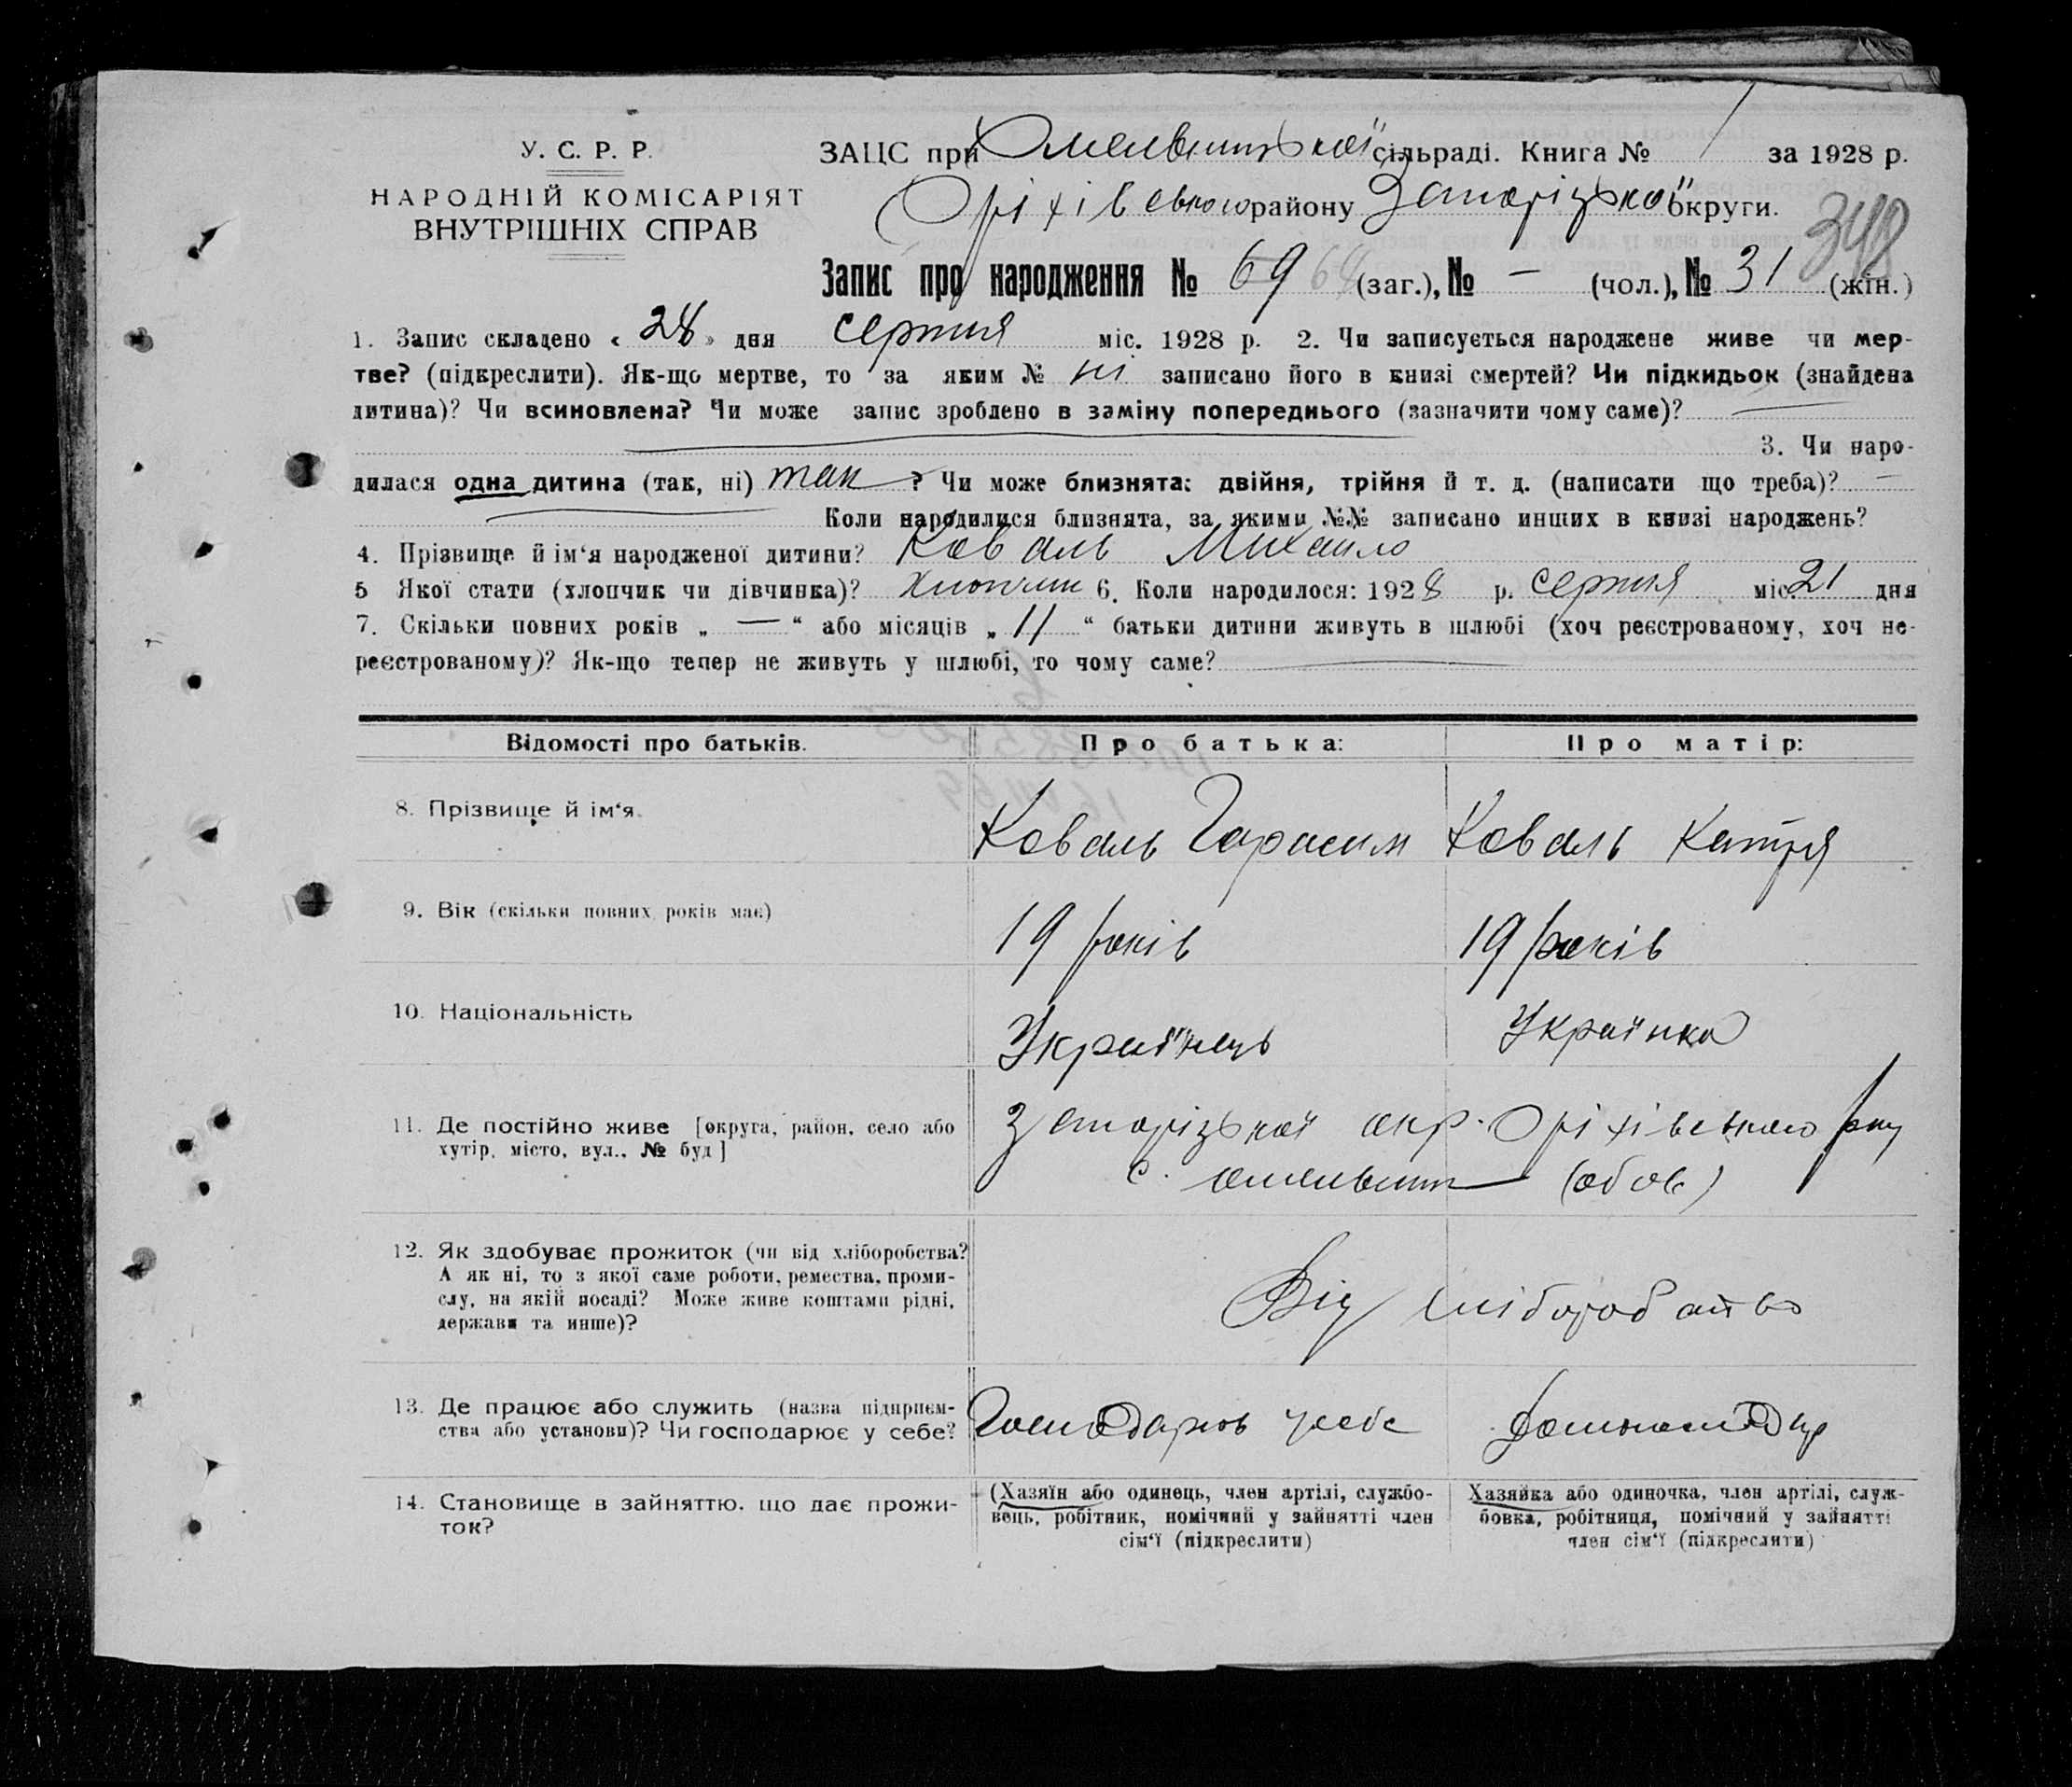 У. С. Р. Р.
НАРОДНІЙ КОМІСАРІЯТ
ВНУТРІШНІХ СПРАВ
ЗАЦС при Омельницької сільраді. Книга № 1 за 1928 р.
Оріхівського району Запорізької округи.
348
Запис про народження № 69 68 (заг.), № — (чол.), № 31 (жін.)
1. Запис складено « 28 » дня серпня міс. 1928 р. 2. Чи записується народжене живе чи мер-
тве? (підкреслити). Як-що мертве, то за яким № ні записано його в книзі смертей? Чи підкидьок (знайдена
дитина)? Чи всиновлена? Чи може запис зроблено в заміну попереднього (зазначити чому саме)? —
3. Чи наро-
дилася одна дитина (так, ні) так ? Чи може близнята: двійня, трійня й т. д. (написати що треба)? —
Коли народилися близнята, за якими №№ записано инших в книзі народжень?
4. Прізвище й ім‘я народженої дитини? Коваль Михайло
5 Якої стати (хлопчик чи дівчинка)? Хлопчик 6. Коли народилося: 1928 р. серпня міс. 21 дня
7. Скільки повних років „ — “ або місяців „ 11 “ батьки дитини живуть в шлюбі (хоч реєстрованому, хоч не-
реєстрованому)? Як-що тепер не живуть у шлюбі, то чому саме? —
Відомості про батьків. Про батька: Про матір:
8. Прізвище й ім‘я. Коваль Гарасим Коваль Катря
9. Вік (скільки повних років має) 19 років 19 років
10. Національність Українець Українка
11. Де постійно живе [округа, район, село або
хутір, місто, вул., № буд]
Запорізької окр. Оріхівського р-ну
с. Омельник (обоє)
12. Як здобуває прожиток (чи від хліборобства?
А як ні, то з якої саме роботи, ремества, проми-
слу, на якій посаді? Може живе коштами рідні,
держави та инше)?
Від хліборобства
13. Де працює або служить (назва підприєм-
ства або установи)? Чи господарює у себе?
Господарює у себе
14. Становище в зайняттю, що дає прожи-
ток?
(Хазяїн або одинець, член артілі, службо-
вець, робітник, помічний у зайнятті член
сім‘ї (підкреслити)
Хазяйка або одиночка, член артілі, служ-
бовка, робітниця, помічний у зайнятті
член сім‘ї (підкреслити)